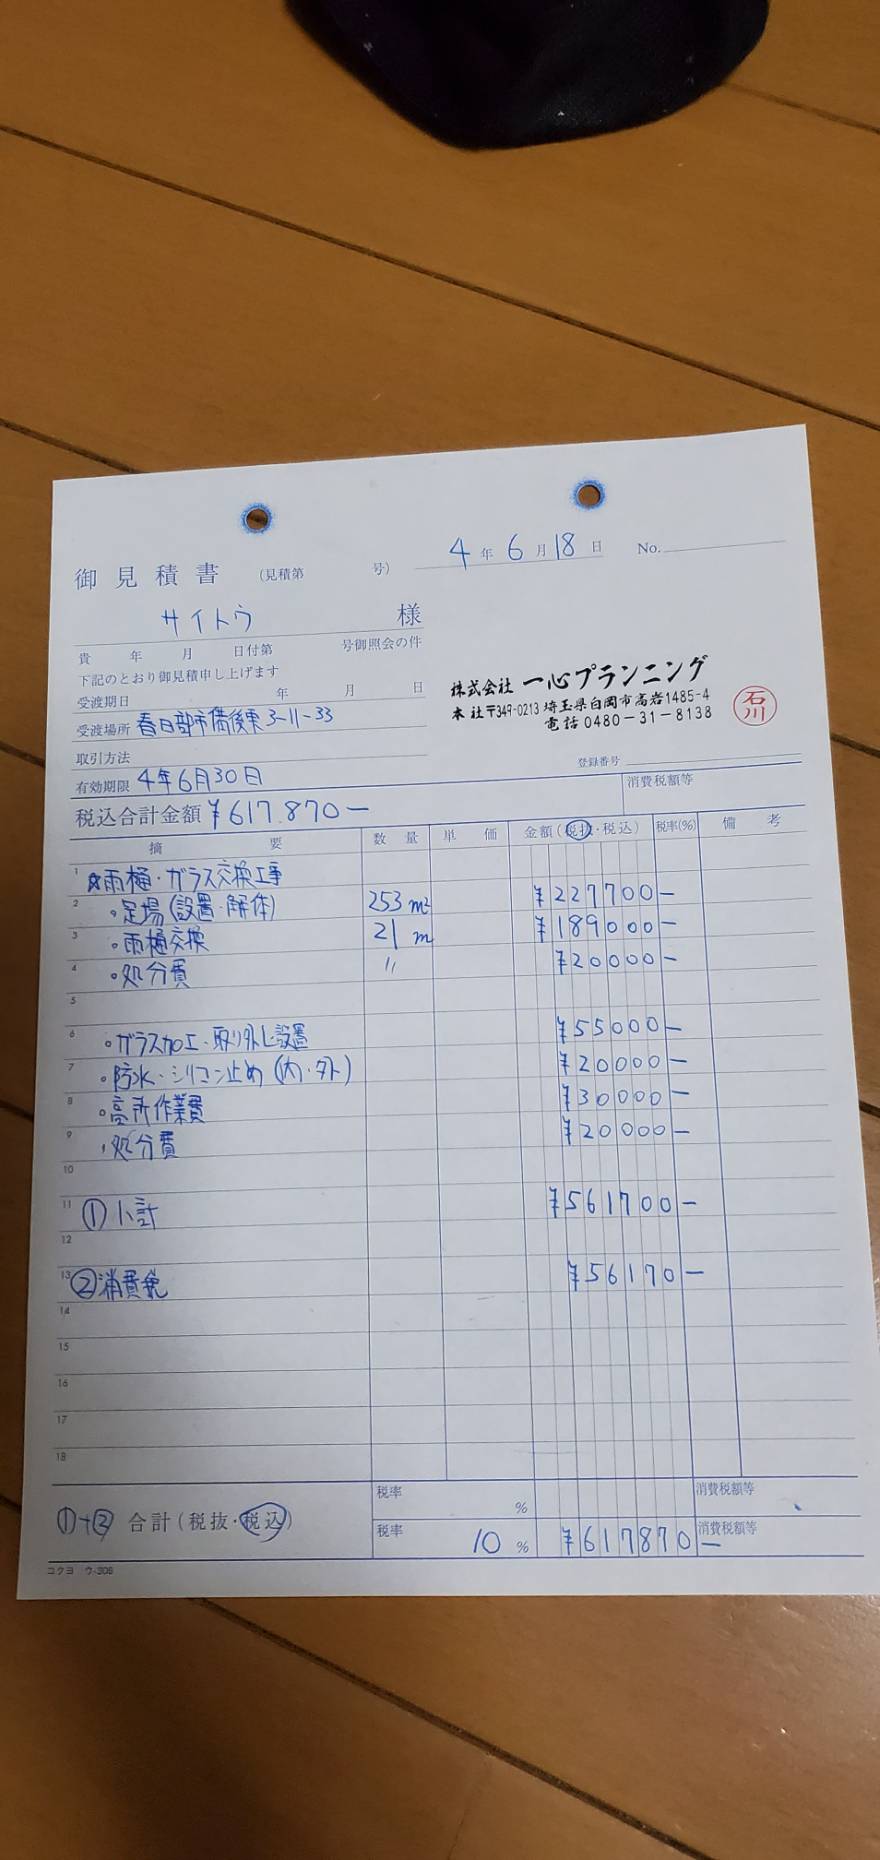 御見積書 (見積第 号) 4年6月18日 No.
サイトウ 様
貴 年 月 日付第 号御照会の件
下記のとおり御見積申し上げます
受渡期日 年 月 日
受渡場所 春日部市備後東3-11-33
取引方法
有効期限 4年6月30日
株式会社 一心プランニング
本社〒349-0213 埼玉県白岡市高岩1485-4
電話 0480-31-8138
石川
登録番号
税込合計金額 ¥617.870- 消費税額等
摘要 数量 単価 金額(税抜・税込) 税率(%) 備考
1 ☆雨樋・ガラス交換工事
2 ・足場(設置・解体) 253m² ¥227700-
3 ・雨樋交換 21m ¥189000-
4 ・処分費 〃 ¥20000-
5
6 ・ガラス加工・取り外し設置 ¥55000-
7 ・防水・シリコン止め(内・外) ¥20000-
8 ・高所作業費 ¥30000-
9 ・処分費 ¥20000-
10
11 ①小計 ¥561700-
12
13 ②消費税 ¥56170-
14
15
16
17
18
税率 % 消費税額等
①+② 合計(税抜・税込) 税率 10% ¥617870- 消費税額等
コクヨ ウ-306